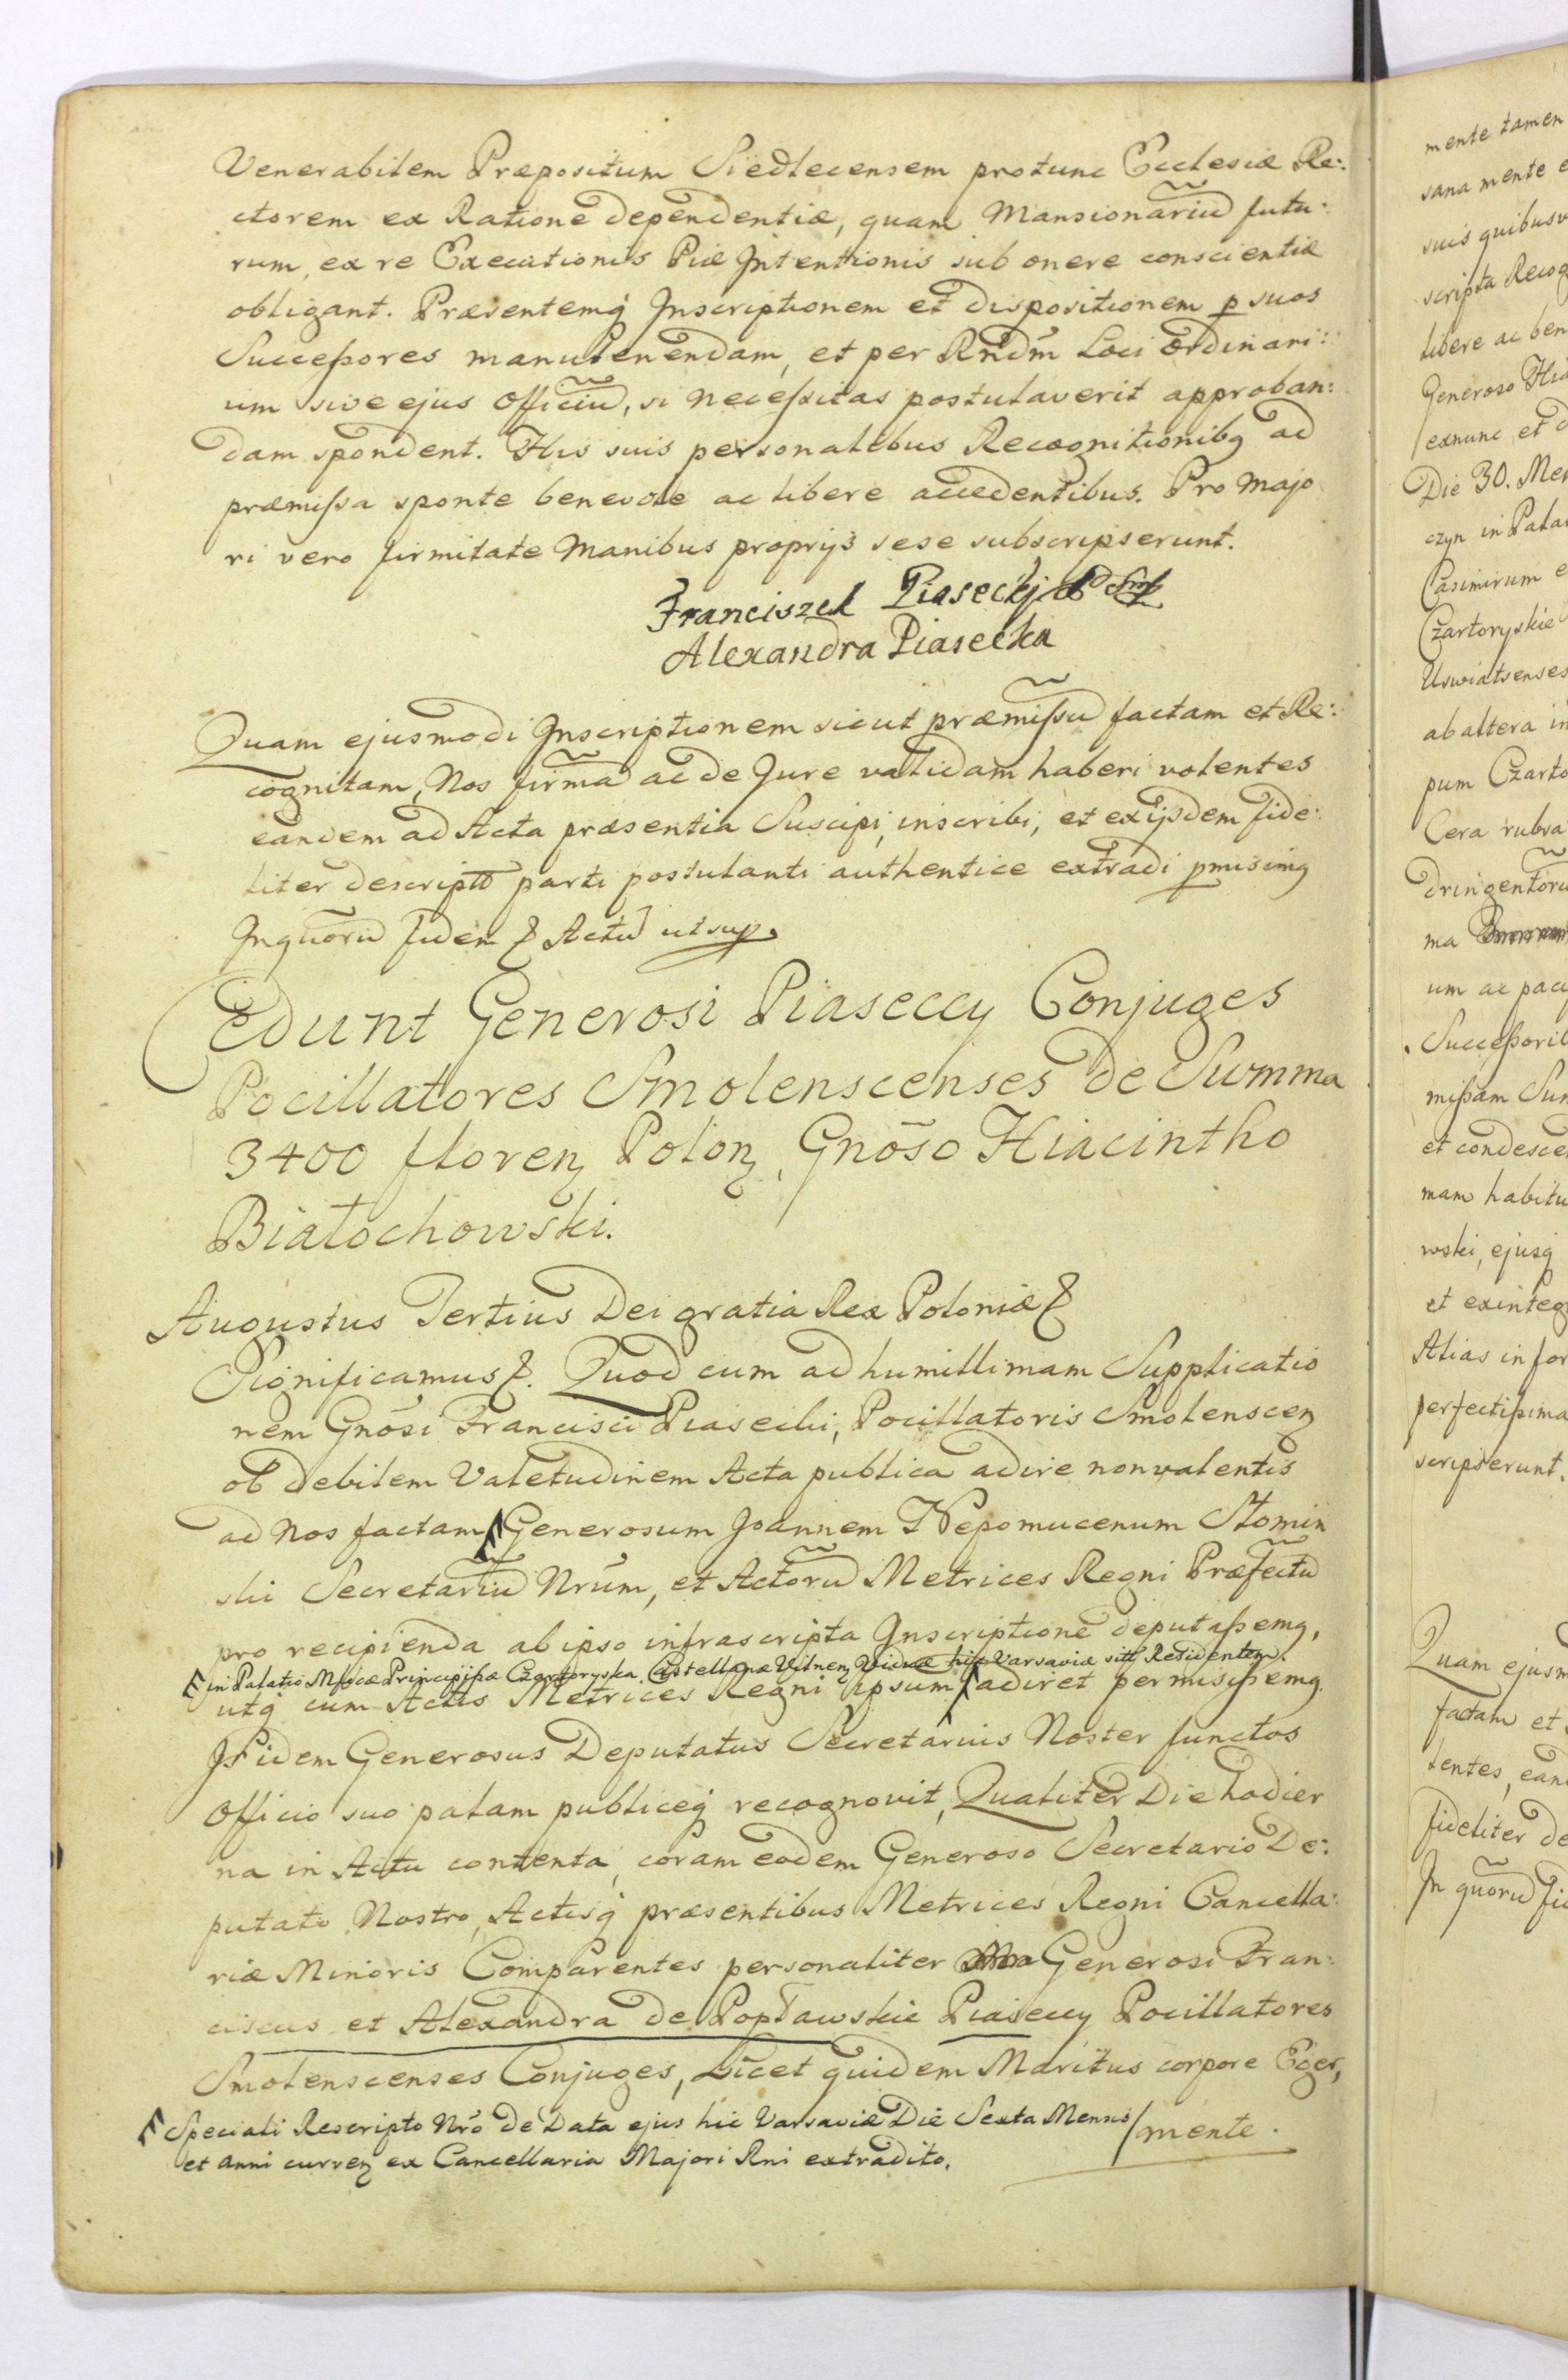 Venerabilem Præpositum Siedlecensem protunc Ecclesiæ Re:
ctorem ex Ratione dependentiæ, quam Mansionariũ futu:
rum, ex re Executionis Piæ Intentionis sub onere conscientiæ
obligant. Præsentemq Inscriptionem et dispositionem p suos
Successores manutenendam, et per Rndm̃ Loci Ordinari:
um sive ejus Officiũ, si necessitas postulaverit approban:
dam spondent. His suis personalibus Recognitionibq ad
præmissa sponte benevole ac libere accedentibus. Pro Majo
ri vero firmitate Manibus proprijs sese subscripserunt.
Franciszek Piaseckj
Alexandra Piasecka
Quam ejusmodi Inscriptionem sicut præmissũ factam et Re:
cognitam, Nos firmã ac de Jure validam haberi volentes
eandem ad Acta præsentia Suscipi, inscribi, et exijsdem fide:
liter descriptã parti postulanti authentice extradi pmisimq
Inquorũ fidem & Actũ ut sup.
Cedunt Generosi Piaseccy Conjuges
Pocillatores Smolenscenses de Summa
3400 floren Polon, Gnõso Hiacintho
Białochowski.
Augustus Tertius Dei gratia Rex Poloniæ &
Significamus &. Quod cum ad humillimam Supplicatio
nem Gnõsi Francisci Piasecki, Pocillatoris Smolenscen
ob debilem Valetudinem Acta publica adire nonvalentis
ad Nos factam Generosum Joannem Nepomucenum Słomin
ski Secretariũ Nrũm, et Actorũ Metrices Regni Præfectũ
pro recipienda ab ipso infrascripta Inscriptione deputassemq,
in Palatio Mficæ Principissæ Czartoryska Castellanæ Vilnen Viduæ hic Varsaviæ sitt Residentem
utq cum Actis Metrices Regni ipsum adiret permisissemq.
Is idem Generosus Deputatus Secretarius Noster functos
Officio suo palam publiceq recognovit, Qualiter Die hodier
na in Actu contenta, coram eodem Generoso Secretario De:
putato Nostro, Actisq præsentibus Metrices Regni Cancella:
riæ Minoris Comparentes personaliter Generosi Fran:
ciscus et Alexandra de Popławskie Piaseccy Pocillatores
Smolenscenses Conjuges, Licet quidem Maritus corpore Eger,
Speciali Rescripto Nrõ de Data ejus hic Varsaviæ Die Sexta Mensis /mente.
et anni curren ex Cancellaria Majori Rni extradito.
mente tamen
sana mente e
suis quibusv
scripta Recog
libere ac ben
Generoso Hia
exnunc et d
Die 30. Men
czyn in Pala
Casimirum e
Czartoryskie
Uswiatsenses
ab altera in
pum Czarto
Cera rubra
dringentorũ
ma
um ac paci
Successorib
missam Sum
et condesce
mam habitu
wski, ejusq
et exinteg
Alias in for
perfectissima
scripserunt.
Quam ejusm
factam et
lentes, ean
fideliter de
In quorũ fid